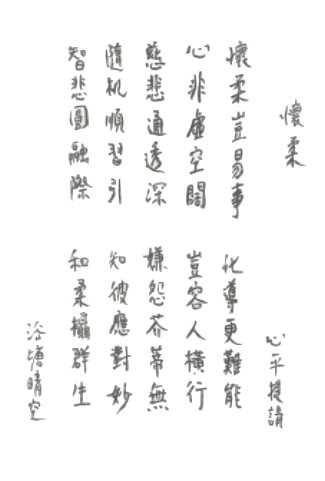 懷柔
懷柔豈易事
心非虛空闊
慈悲通透深
隨机順習引
智悲圓融際
心平提誦
化導更難能
豈容人橫行
嫌怨芥蒂無
知彼應對妙
和柔攝群生
浴塘晴空